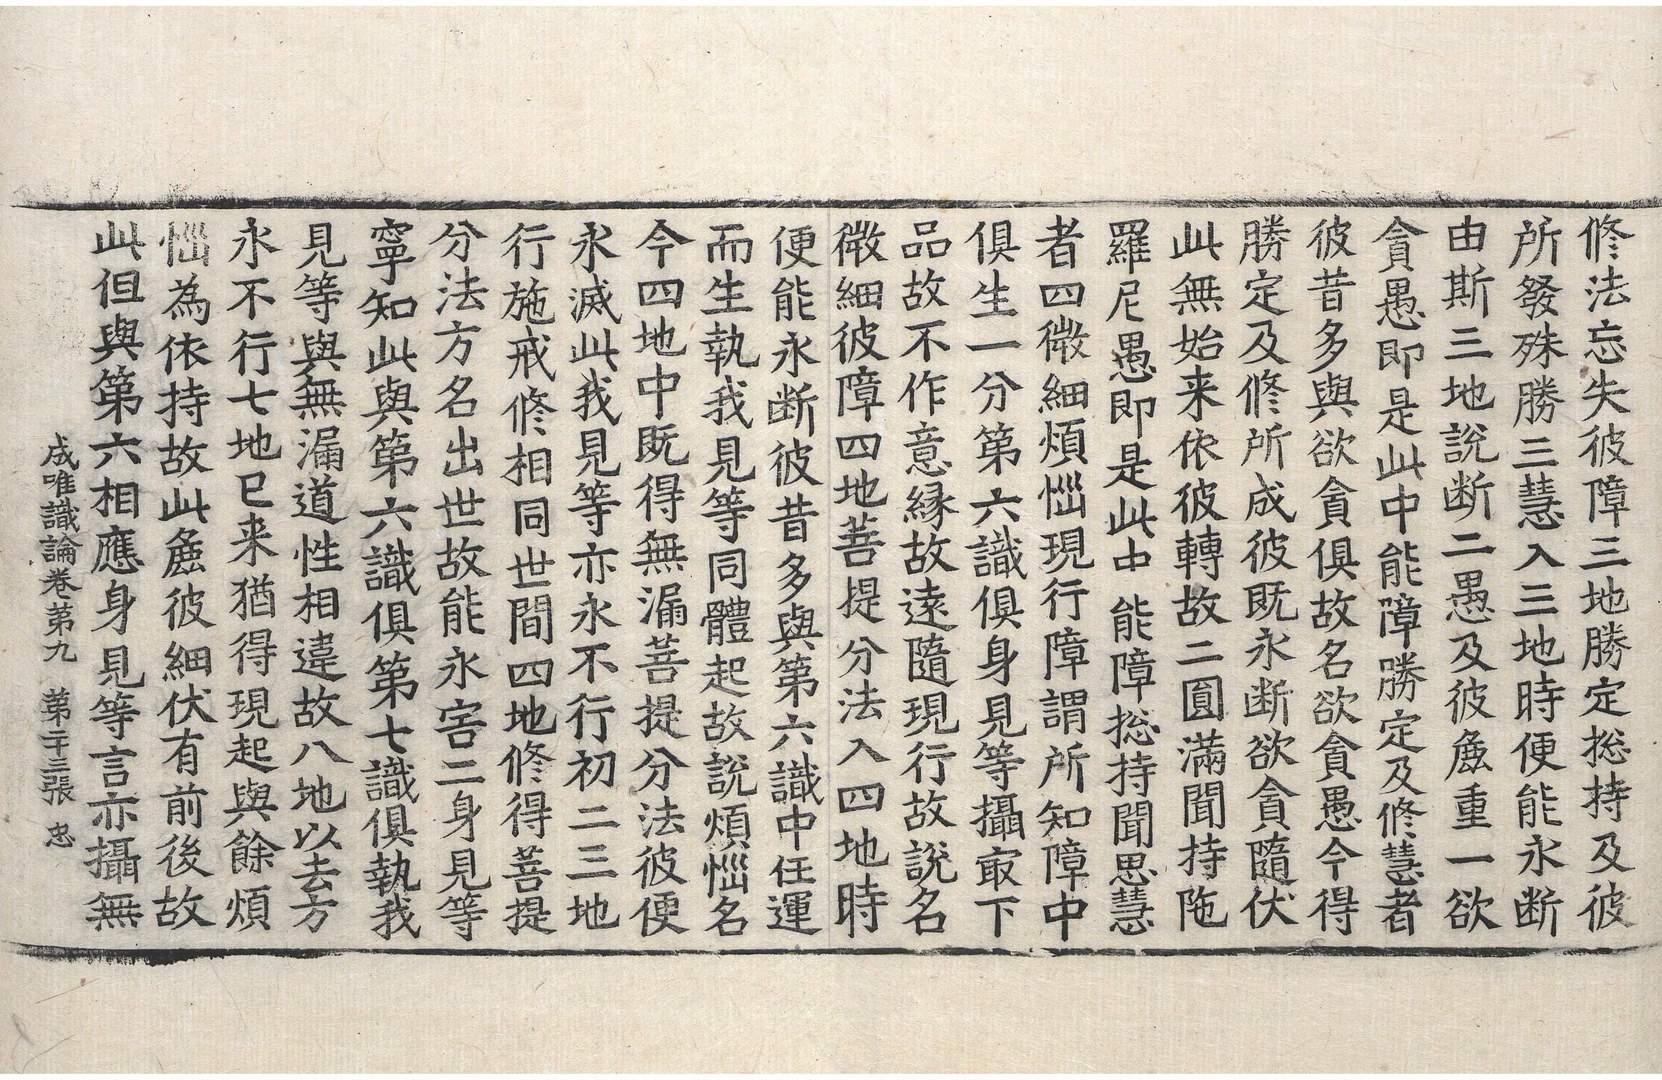 修法忘失彼障三地勝定捴持及彼
所發殊勝三慧入三地時便能永断
由斯三地說断二愚及彼麁重一欲
貪愚即是此中能障勝定及修慧者
彼昔多與欲貪俱故名欲貪愚今得
勝定及修所成彼既永断欲貪隨伏
此無始来依彼轉故二圓滿聞持陁
羅尼愚即是此中能障捴持聞思慧
者四微細煩惱現行障謂所知障中
俱生一分第六識俱身見等攝㝡下
品故不作意緣故遠隨現行故說名
微細彼障四地菩提分法入四地時
便能永断彼昔多與第六識中任運
而生執我見等同體起故說煩惱名
今四地中既得無漏菩提分法彼便
永滅此我見等亦永不行初二三地
行施戒修相同世間四地修得菩提
分法方名出世故能永害二身見等
寧知此與第六識俱第七識俱執我
見等與無漏道性相違故八地以去方
永不行七地已来猶得現起與餘煩
惱為依持故此麁彼細伏有前後故
此但與第六相應身見等言亦攝無
成唯識論卷第九　第二十三張　忠